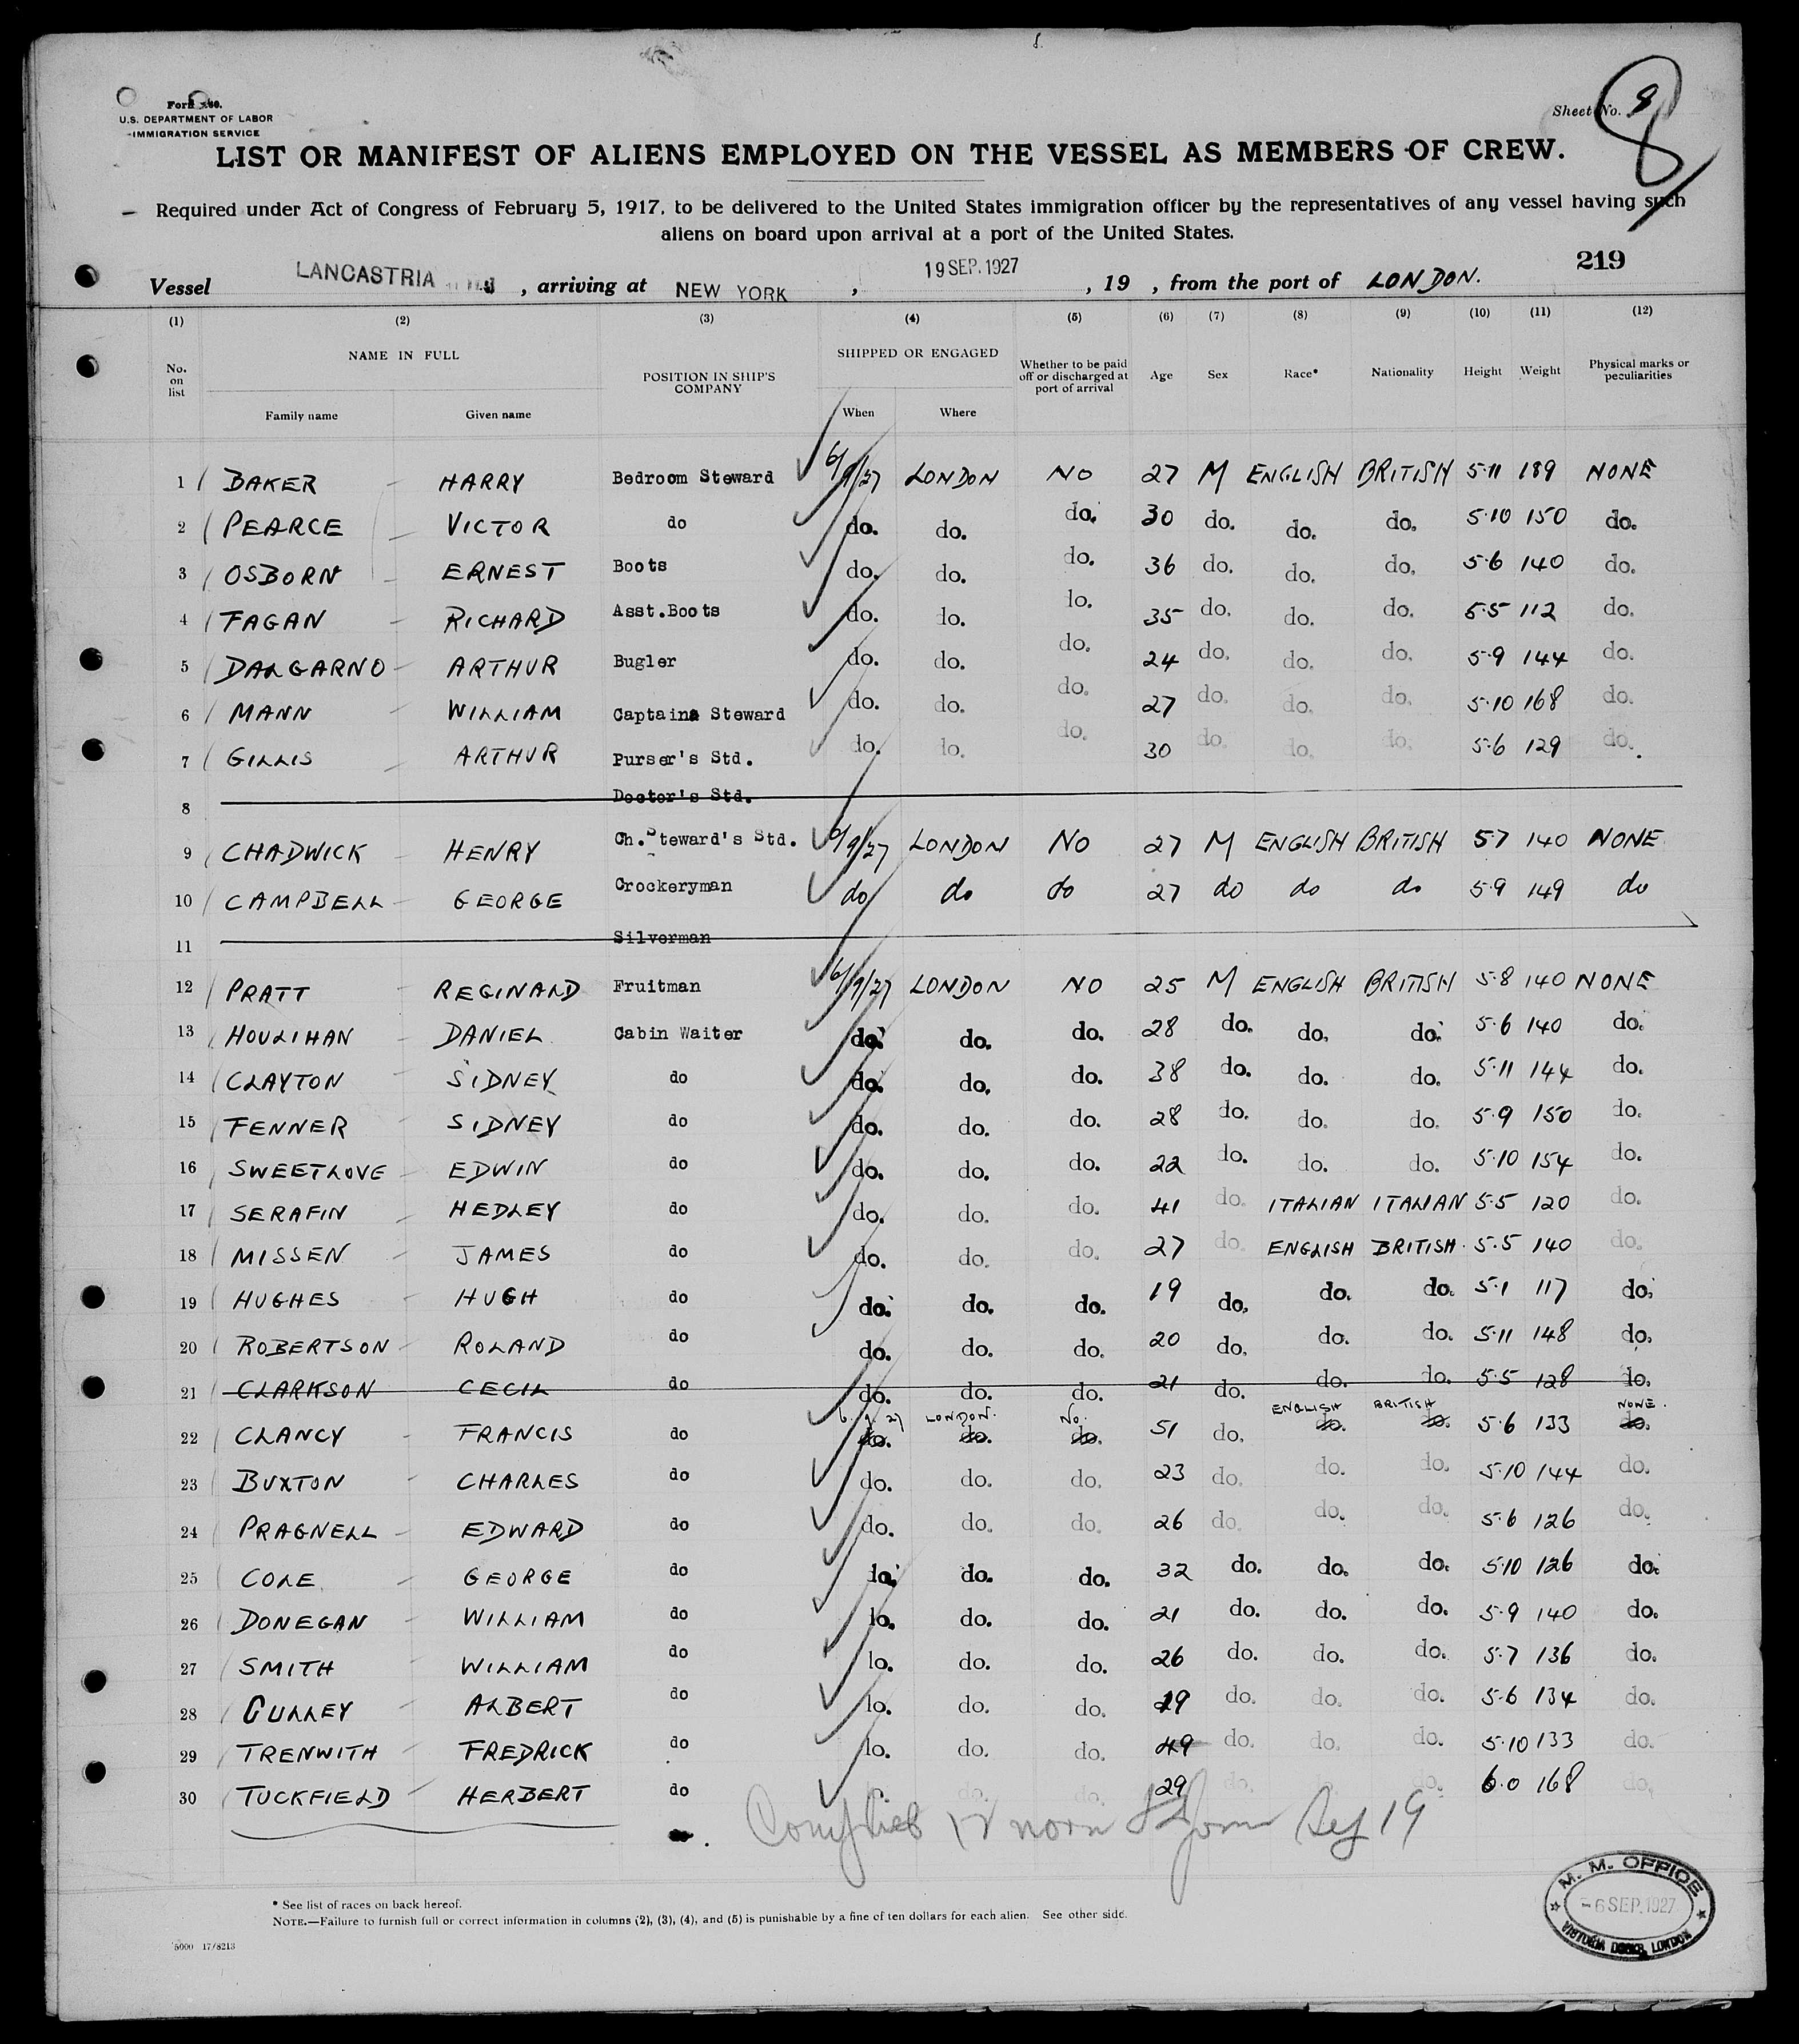 Sheet No. 8
8
U.S. DEPARTMENT OF LABOR
IMMIGRATION SERVICE
LIST OR MANIFEST OF ALIENS EMPLOYED ON THE VESSEL AS MEMBERS OF CREW.
Required under Act of Congress of February 5, 1917, to be delivered to the United States immigration officer by the representatives of any vessel having such
aliens on board upon arrival at a port of the United States.
219
Vessel LANCASTRIA , arriving at NEW YORK , 19 SEP. 1927 , 19 , from the port of LONDON.
(1) (2) (3) (4) (5) (6) (7) (8) (9) (10) (11) (12)
No. on list NAME IN FULL Family name Given name POSITION IN SHIP'S COMPANY SHIPPED OR ENGAGED When Where Whether to be paid off or discharged at port of arrival Age Sex Race* Nationality Height Weight Physical marks or peculiarities
1 BAKER HARRY Bedroom Steward 6/9/27 LONDON NO 27 M ENGLISH BRITISH 5·11 189 NONE
2 PEARCE VICTOR do do. do. do. 30 do. do. do. 5·10 150 do.
3 OSBORN ERNEST Boots do. do. do. 36 do. do. do. 5·6 140 do.
4 FAGAN RICHARD Asst.Boots do. do. lo. 35 do. do. do. 5·5 112 do.
5 DALGARNO ARTHUR Bugler do. do. do. 24 do. do. do. 5·9 144 do.
6 MANN WILLIAM Captains Steward do. do. do. 27 do. do. do. 5·10 168 do.
7 GILLIS ARTHUR Purser's Std. do. lo. do. 30 do. do. do. 5·6 129 do.
8 Doctor's Std.
9 CHADWICK HENRY Ch. Steward's Std. 6/9/27 LONDON NO 27 M ENGLISH BRITISH 5·7 140 NONE
10 CAMPBELL GEORGE Crockeryman do do do 27 do do do 5·9 149 do
11 Silverman
12 PRATT REGINALD Fruitman 6/9/27 LONDON NO 25 M ENGLISH BRITISH 5·8 140 NONE
13 HOULIHAN DANIEL Cabin Waiter do. do. do. 28 do. do. do. 5·6 140 do.
14 CLAYTON SIDNEY do do. do. do. 38 do. do. do. 5·11 144 do.
15 FENNER SIDNEY do do. do. do. 28 do. do. do. 5·9 150 do.
16 SWEETLOVE EDWIN do do. do. do. 22 do. do. do. 5·10 154 do.
17 SERAFIN HEDLEY do do. do. do. 41 do. ITALIAN ITALIAN 5·5 120 do.
18 MISSEN JAMES do do. do. do. 27 do. ENGLISH BRITISH 5·5 140 do.
19 HUGHES HUGH do do. do. do. 19 do. do. do. 5·1 117 do.
20 ROBERTSON ROLAND do do. do. do. 20 do. do. do. 5·11 148 do.
21 CLARKSON CECIL do do. do. do. 21 do. do. do. 5·5 128 do.
6. 9. 27 LONDON. No. ENGLISH BRITISH NONE.
22 CLANCY FRANCIS do do. do. do. 51 do. do. do. 5·6 133 do.
23 BUXTON CHARLES do do. do. do. 23 do. do. do. 5·10 144 do.
24 PRAGNELL EDWARD do do. do. do. 26 do. do. do. 5·6 126 do.
25 COLE GEORGE do do. do. do. 32 do. do. do. 5·10 126 do.
26 DONEGAN WILLIAM do lo. do. do. 21 do. do. do. 5·9 140 do.
27 SMITH WILLIAM do lo. do. do. 26 do. do. do. 5·7 136 do.
28 GULLEY ALBERT do lo. do. do. 29 do. do. do. 5·6 134 do.
29 TRENWITH FREDRICK do lo. do. do. 49 do. do. do. 5·10 133 do.
30 TUCKFIELD HERBERT do do. do. 29 do. do. do. 6·0 168 do.
Sep 19
* See list of races on back hereof.
NOTE.—Failure to furnish full or correct information in columns (2), (3), (4), and (5) is punishable by a fine of ten dollars for each alien. See other side.
5000 17/8213
M. M. OFFICE
-6 SEP. 1927
VICTORIA DOCKS, LONDON